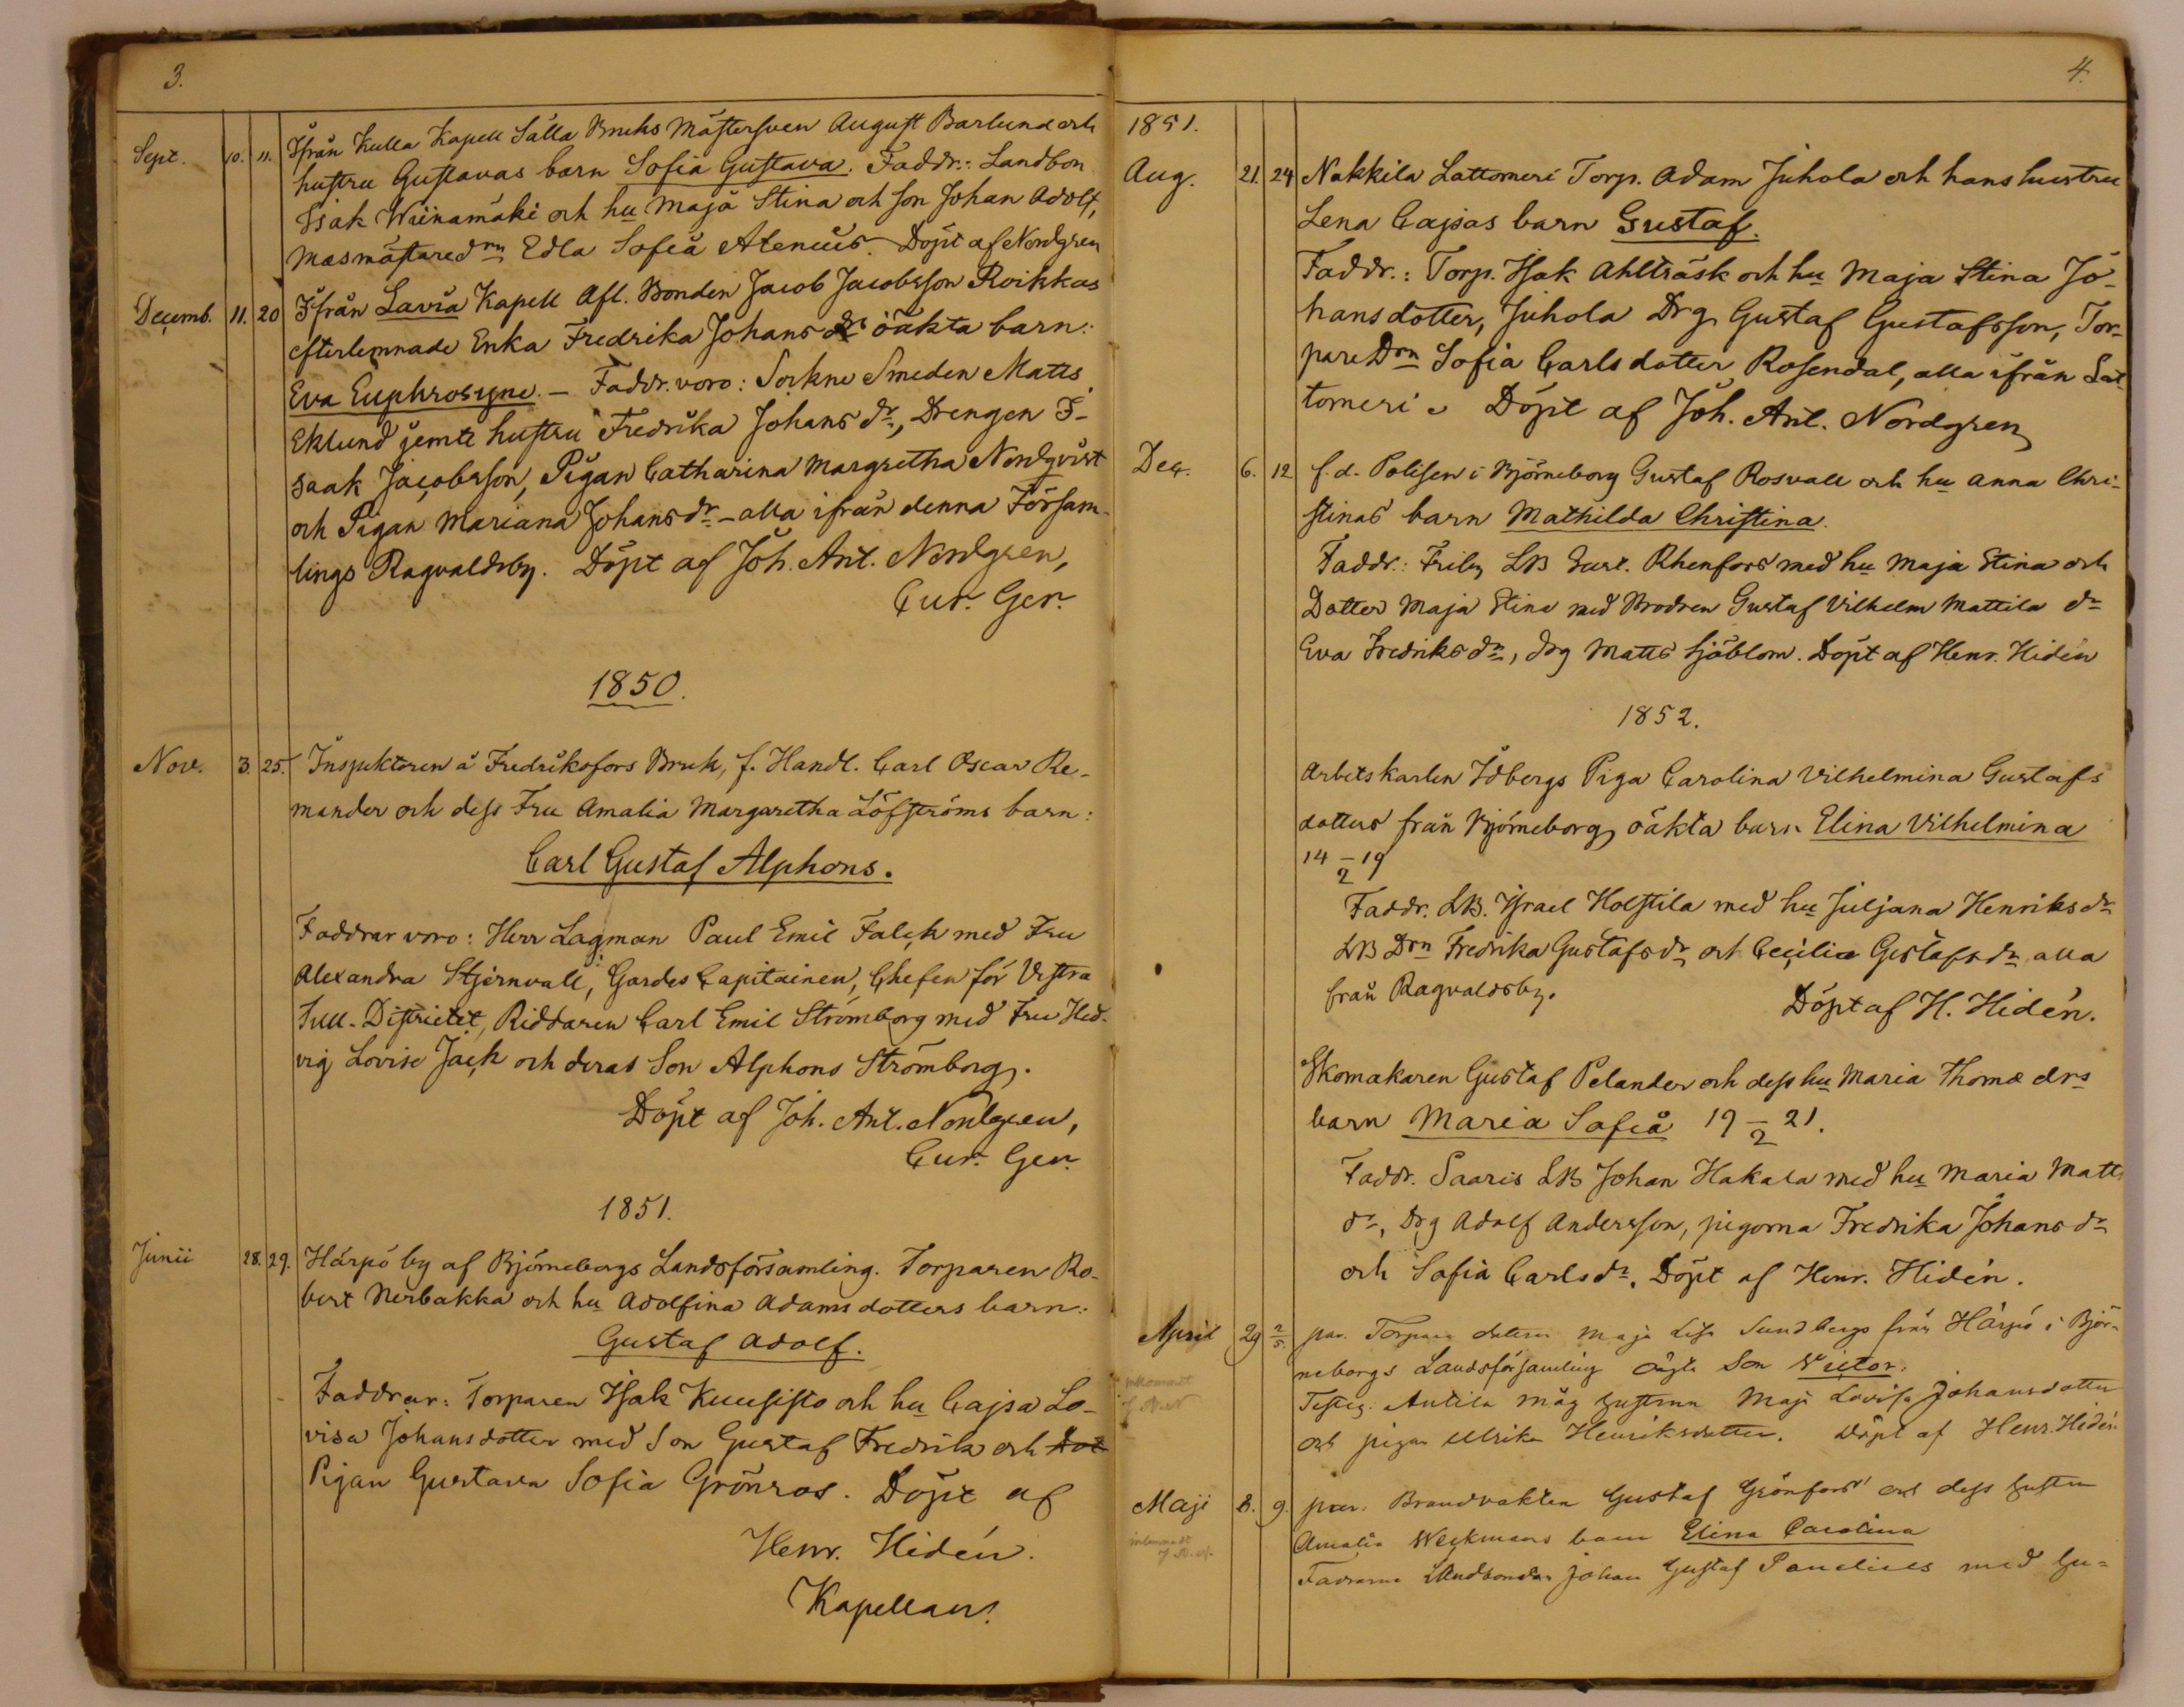 3.
Sept. 10. 11. Ifrån Kulla Kapell Sälla Bruks Mästersven August Barlund och
hustru Gustavas barn Sofia Gustava. Faddr.: Landbon
Isak Wiinamäki och hu Maja Stina och son Johan Adolf,
Masmästaredrn Edla Sofia Alenius. Döpt af Nordgren
Decemb. 11. 20 Ifrån Lavia Kapell Afl. Bonden Jacob Jacobsson Roikkas
efterlemnade Enka Fredrika Johans drs oäkta barn:
Eva Euphrosyne. – Faddr. voro: Sockne Smeden Matts
Eklund jemte hustru Fredrika Johans dr, Drengen I-
saak Jacobsson, Pigan Catharina Margretha Nordqvist
och Pigan Mariana Johansdr – alla ifrån denna Försam-
lings Ragvaldsby. Döpt af Joh. Ant. Nordgren,
Cur. Ger.
1850.
Nov. 3. 25. Inspektoren å Fredriksfors Bruk, f. Handl. Carl Oscar Re-
mander och dess Fru Amalia Margaretha Löfströms barn:
Carl Gustaf Alphons.
Faddrar voro: Herr Lagman Paul Emil Falck med Fru
Alexandra Stjernvall, Gardes Capitainen, Chefen för Vestra
Tull-Districtet, Riddaren Carl Emil Strömborg med Fru Hed-
vig Lovise Jack och deras Son Alphons Strömborg.
Döpt af Joh. Ant. Nordgren,
Cur. Ger.
1851.
Junii 28. 29. Härpö by af Björneborgs Landsförsamling. Torparen Ro-
bert Nerbakka och hu Adolfina Adamsdotters barn:
Gustaf Adolf.
Faddrar: Torparen Isak Kuusisto och hu Cajsa Lo-
visa Johansdotter med Son Gustaf Fredrik och Dot
Pigan Gustava Sofia Grönros. Döpt af
Henr. Hidén.
Kapellan.
4.
1851.
Aug. 21. 24 Nakkila Lattomeri Torp. Adam Juhola och hans hustru
Lena Cajsas barn Gustaf.
Faddr.: Torp. Isak Ahlträsk och hu Maja Stina Jo-
hansdotter, Juhola Drg Gustaf Gustafsson, Tor-
pare Drn Sofia Carlsdotter Rosendal, alla ifrån Lat-
tomeri. Döpt af Joh. Ant. Nordgren
Dec. 6. 12 f.d. Polisen i Björneborg Gustaf Rosvall och hu Anna Chri-
stinas barn Mathilda Christina.
Faddr.: Friby LB Gust. Rhenfors med hu Maja Stina och
Dotter Maja Stina med Brodren Gustaf Vilhelm Mattila dr
Eva Fredriks dr, drg Matts Sjöblom. Döpt af Henr. Hidén
1852.
Arbetskarlen Idbergs Piga Carolina Vilhelmina Gustafs
dotters från Björneborg oäkta barn Elina Vilhelmina
14 – 19
2
Faddr. LB. Israel Holstila med hu Juljana Henriksdr
LB Drn Fredrika Gustafsdr och Cecilia Gustafsdr alla
från Ragvaldsby. Döpt af H. Hidén.
Skomakaren Gustaf Pelander och dess hu Maria Thomæ drs
barn Maria Sofia 19 – 21.
2
Faddr. Saaris LB Johan Hakala med hu Maria Matts
dr, Drg Adolf Andersson, pigorna Fredrika Johansdr
och Sofia Carlsdr. Döpt af Henr. Hidén.
April 29 2/5 par. Torpare dottern Maja Lisa Sundbergs från Härpö i Björ-
neborgs Landsförsamling oägta Son Victor.
Antila måg hustrun Maja Lovisa Johansdotter
och pigan Ulrika Henriksdotter. Döpt af Henr. Hidén
Maji 8. 9. par. Brandvakten Gustaf Grönfors och dess hustru
Amalia Weckmans barn Elina Carolina
Faddrarne Landbonden Johan Gustaf Panelius med hu-